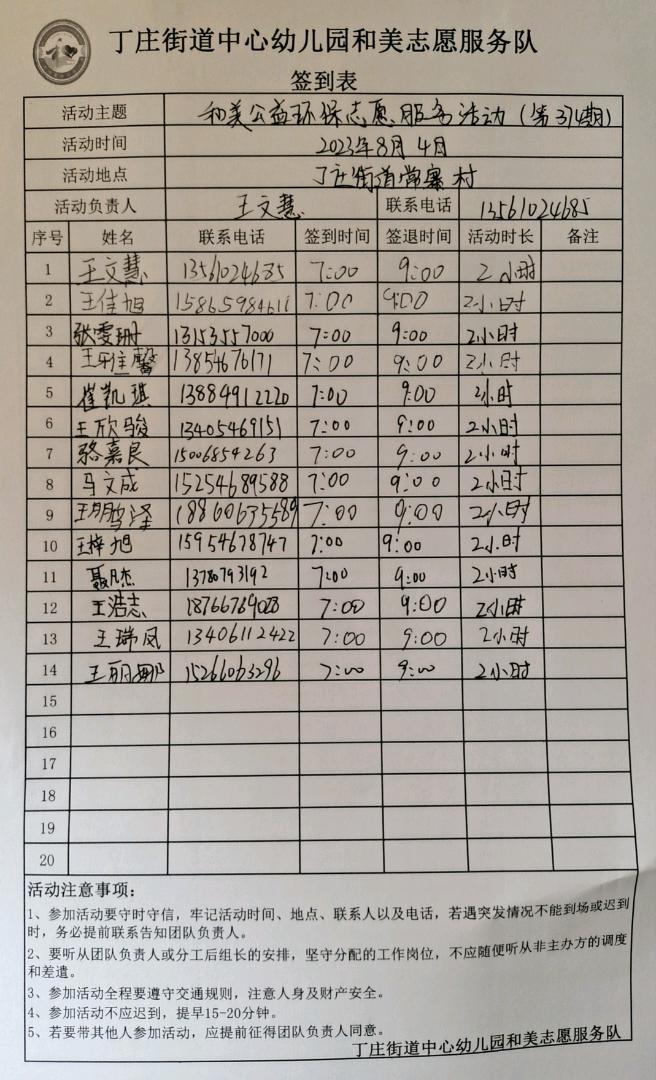 丁庄街道中心幼儿园和美志愿服务队
签到表
活动主题 和美公益环保志愿服务活动（第314期）
活动时间 2023年8月4日
活动地点 丁庄街道常寨村
活动负责人 王文慧 联系电话 13561024685
序号 姓名 联系电话 签到时间 签退时间 活动时长 备注
1 王文慧 13561024685 7:00 9:00 2小时
2 王佳旭 15865984611 7:00 9:00 2小时
3 张雯珊 13153557000 7:00 9:00 2小时
4 王雅馨 1385467 7:00 9:00 2小时
5 崔凯琪 13884912220 7:00 9:00 2小时
6 王欣骏 13405469151 7:00 9:00 2小时
7 骆嘉良 15006854263 7:00 9:00 2小时
8 马文成 15254689588 7:00 9:00 2小时
9 鹏泽 7:00 9:00 2小时
10 王梓旭 15954678747 7:00 9:00 2小时
11 聂凡杰 13780793192 7:00 9:00 2小时
12 王浩志 18766769028 7:00 9:00 2小时
13 王瑞凤 13406112422 7:00 9:00 2小时
14 王丽娜 15266063296 7:00 9:00 2小时
15
16
17
18
19
20
活动注意事项：
1、参加活动要守时守信，牢记活动时间、地点、联系人以及电话，若遇突发情况不能到场或迟到
时，务必提前联系告知团队负责人。
2、要听从团队负责人或分工后组长的安排，坚守分配的工作岗位，不应随便听从非主办方的调度
和差遣。
3、参加活动全程要遵守交通规则，注意人身及财产安全。
4、参加活动不应迟到，提早15-20分钟。
5、若要带其他人参加活动，应提前征得团队负责人同意。
丁庄街道中心幼儿园和美志愿服务队